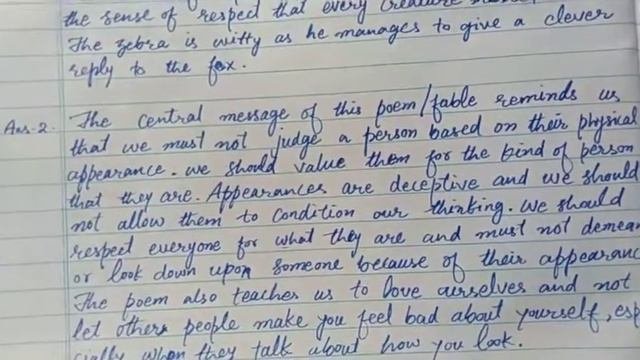 the sense of respect that every creature
The zebra is witty as he manages to give a clever
reply to the fox.
Ans-2. The central message of this poem/fable reminds us
that we must not judge a person based on their physical
appearance. we should value them for the kind of person
that they are. Appearances are deceptive and we should
not allow them to condition our thinking. we should
respect everyone for what they are and must not demean
or look down upon someone because of their appearanc
The poem also teaches us to love ourselves and not
let others people make you feel bad about yourself, esp
cially when they talk about how you look.